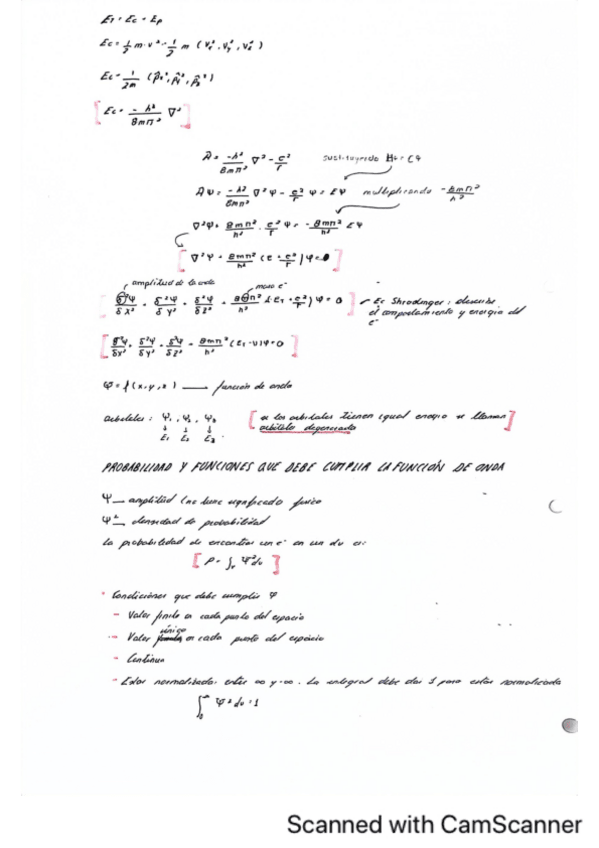 E_T = E_c + E_p
E_c = 1/2 m · v² = 1/2 m (v_x², v_y², v_z²)
E_c = 1/2m (p̂_x², p̂_y², p̂_z²)
[E_c = -h²/8mπ² ∇²]
Ĥ = -h²/8mπ² ∇² - e²/r sustituyendo
ĤΨ = -h²/8mπ² ∇²Ψ - e²/r Ψ = EΨ multiplicando -8mπ²/h²
∇²Ψ + 8mπ²/h² · e²/r Ψ = -8mπ²/h² EΨ
[∇²Ψ + 8mπ²/h² (E + e²/r)Ψ = 0]
amplitud de la onda masa e⁻
δ²Ψ/δx² + δ²Ψ/δy² + δ²Ψ/δz² + 8mπ²/h² (E_T + e²/r)Ψ = 0] Ec Shrodinger: describe
el comportamiento y energia del
e⁻
[δ²Ψ/δx² + δ²Ψ/δy² + δ²Ψ/δz² + 8mπ²/h² (E_T - U)Ψ = 0]
Ψ = f(x,y,z) —— función de onda
orbitales: Ψ₁, Ψ₂, Ψ₃ [si los orbitales tienen igual energia se llaman
↓ ↓ ↓ orbitales degenerados]
E₁ E₂ E₃
PROBABILIDAD Y FUNCIONES QUE DEBE CUMPLIR LA FUNCIÓN DE ONDA
Ψ — amplitud (no tiene significado fisico
Ψ² — densidad de probabilidad
La probabilidad de encontrar un e⁻ en un dv es:
[P = ∫ᵥ Ψ² dv]
• Condiciones que debe cumplir Ψ
- Valor finito en cada punto del espacio
- Valor único en cada punto del espacio
- Continua
- Estar normalizada: entre ∞ y -∞. La integral debe dar 1 para estar normalizada
∫ Ψ² dv = 1
Scanned with CamScanner